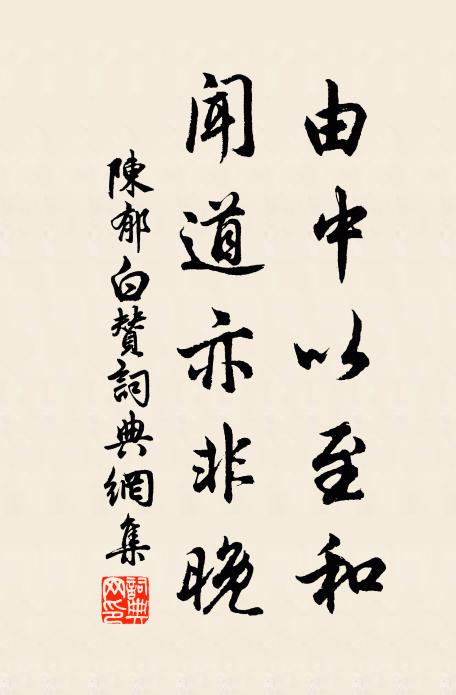 由中以至和
聞道亦非晚
陳郁白賛詞典網集
詞典网印